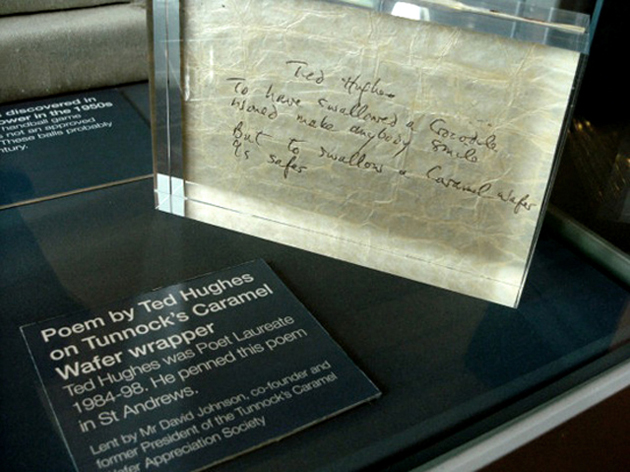 discovered in
ower in the 1950s
handball game
s not an approved
These balls probably
tury.
Ted Hughes
To have swallowed a Crocodile
would make anybody smile
But to swallow a Caramel wafer
Is safer
Poem by Ted Hughes
on Tunnock's Caramel
Wafer wrapper
Ted Hughes was Poet Laureate
1984-98. He penned this poem
in St Andrews.
Lent by Mr David Johnson, co-founder and
former President of the Tunnock's Caramel
Wafer Appreciation Society